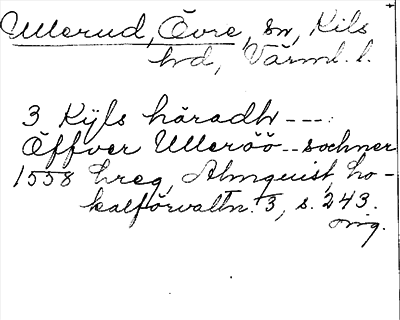 Ullerud, Övre, sn, Kils
hd, Värml. l.
3 Kÿls häradh ---:
Öffver Ulleröö -- sochner
1558 hreg, Almquist, Lo-
kalförvaltn. 3, s. 243.
orig.